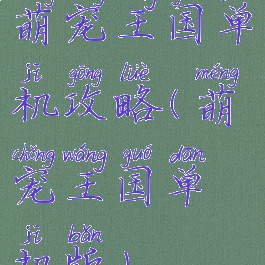 萌宠王国单
jī gōng lüè méng
机攻略(萌
chǒng wáng guó dān
宠王国单
jī bǎn
机版)